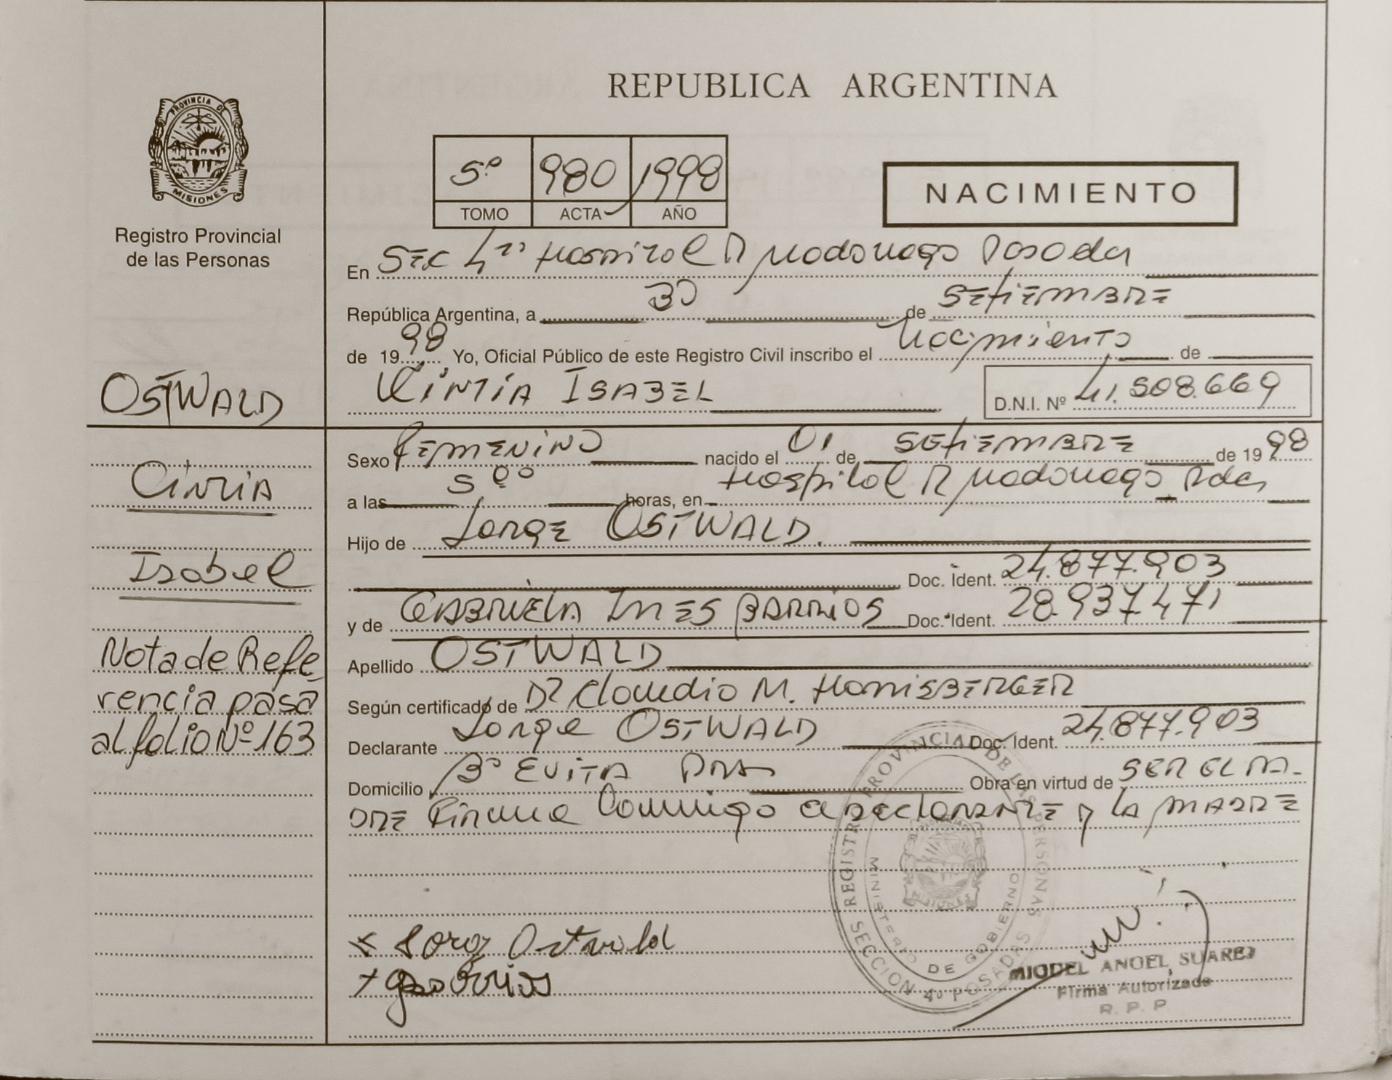 REPUBLICA ARGENTINA
PROVINCIA DE
MISIONES
Registro Provincial
de las Personas
5º 980 1998
TOMO ACTA AÑO
NACIMIENTO
En Sec 4ta Hospital R Madariaga Posadas
República Argentina, a 30 de SETIEMBRE
de 1998 Yo, Oficial Público de este Registro Civil inscribo el Nacimiento de
CINTIA ISABEL D.N.I. Nº 41.508.669
OSTWALD
Cintia
Isabel
Nota de Refe
rencia pasa
al folio Nº 163
Sexo FEMENINO nacido el 01 de SETIEMBRE de 1998
a las 5 00 horas, en Hospital R Madariaga Pdas
Hijo de Jorge OSTWALD.
Doc. Ident. 24.877.903
y de GABRIELA INES BARRIOS Doc. Ident. 28.937.471
Apellido OSTWALD
Según certificado de Dr Claudio M. HONISBERGER
Declarante Jorge OSTWALD Doc. Ident. 24.877.903
Domicilio Bº EVITA Pdas Obra en virtud de SER EL PA-
DRE Firma Conmigo el declarante y la MADRE
REGISTRO PROVINCIAL DE LAS PERSONAS
MINISTERIO DE GOBIERNO
SECCION 4º POSADAS
MIGUEL ANGEL SUAREZ
Firma Autorizada
R. P. P.